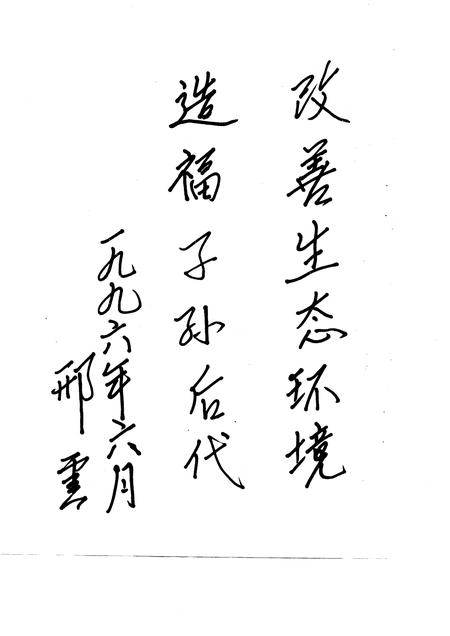 改善生态环境
造福子孙后代
一九九六年六月
邢